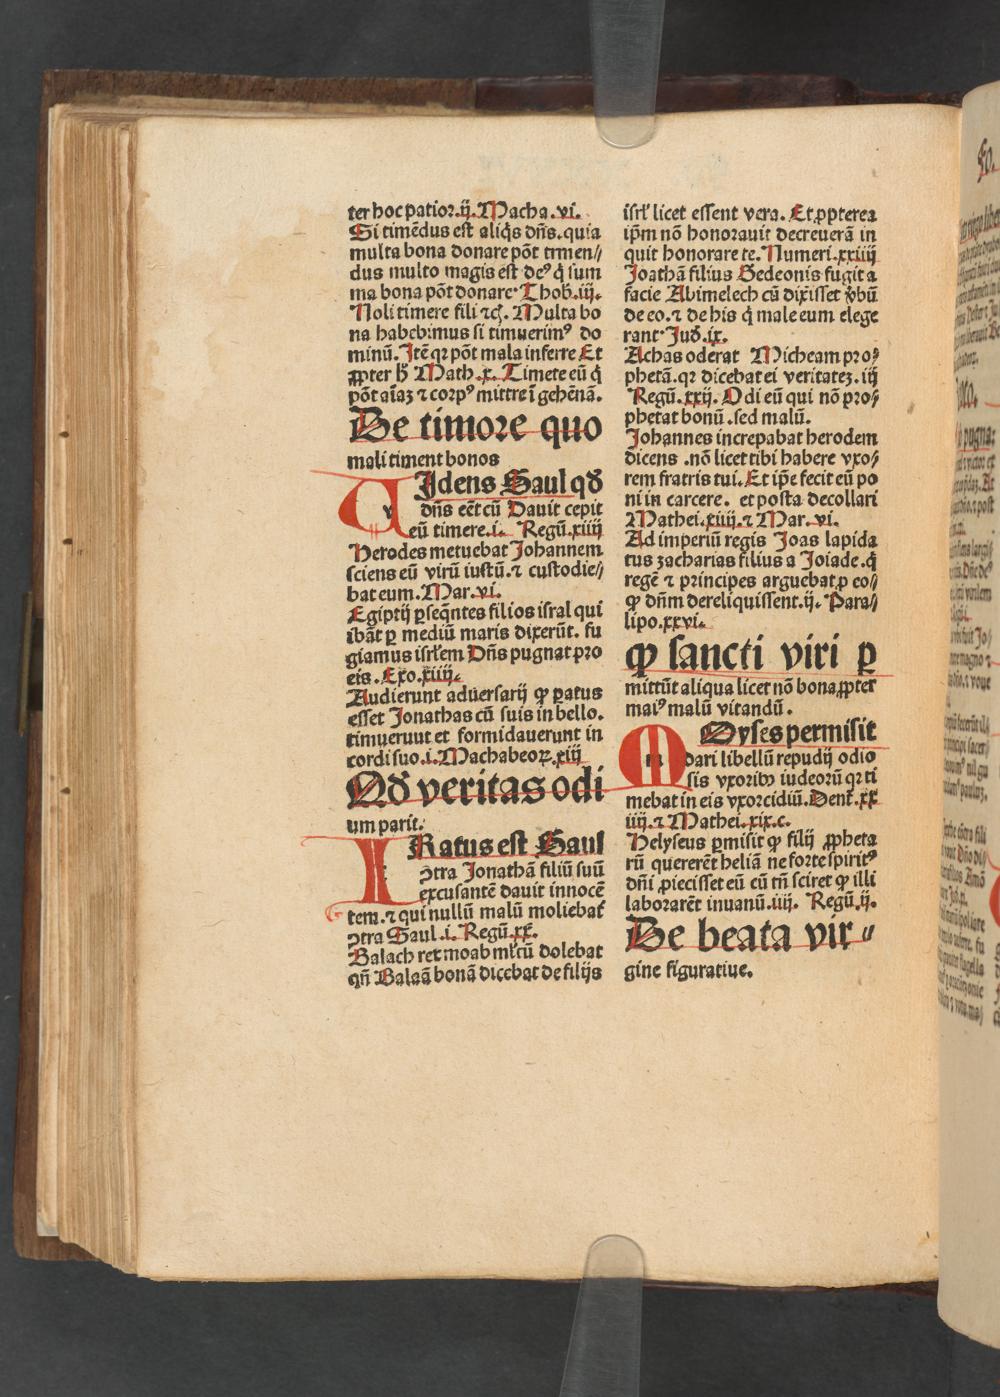 ter hoc patior.ij. Macha.vi.
Si timēdus est aliq̄s dn̄s. quia
multa bona donare pōt trmen//
dus multo magis est deꝰ q̄ sum
ma bona pōt donare. Thob.iij.
Noli timere fili ⁊cꝭ. Multa bo
na habebimus si timuerimꝰ do
minū. Itē qꝛ pōt mala inferre Et
ꝓpter h̄ Math.x. Timete eū q̄
pōt aīaꝫ ⁊ corpꝰ mittre ī gehēnā.
De timore quo
mali timent bonos
VIdens Saul qđ
dn̄s eēt cū Dauit cepit
eū timere.i. Regū.xiiij
Herodes metuebat Johannem
sciens eū virū iustū.⁊ custodie//
bat eum. Mar.vi.
Egiptij ꝑseq̄ntes filios isral qui
ibāt ꝑ mediū maris dixerūt. fu
giamus isrl̄em Dn̄s pugnat pro
eis. Exo.xiiij.
Audierunt aduersarij ꝙ ꝑatus
esset Jonathas cū suis in bello.
timueruut et formidauerunt in
cordi suo.i. Machabeoꝝ.xiij
Qđ veritas odi
um parit.
IRatus est Saul
ꝯtra Jonathā filiū suū
excusantē dauit innocē
tem.⁊ qui nullū malū moliebat̄
ꝯtra Saul.i. Regū.xx.
Balach ret moab ml̄tū dolebat
qn̄ Balaā bonā dicebat de filijs
isrl̄ licet essent vera. Et ꝓpterea
ip̄m nō honorauit decreuerā in
quit honorare te. Numeri.xxiiij
Joathā filius Gedeonis fugit a
facie Abimelech cū dixisset v̄bū
de eo.⁊ de his q̄ male eum elege
rant Jud̄.ix.
Achas oderat Micheam pro⸗
phetā.qꝛ dicebat ei veritateꝫ.iij
Regū.xxij. Odi eū qui nō pro⸗
phetat bonū.sed malū.
Johannes increpabat herodem
dicens.nō licet tibi habere vxo⸗
rem fratris tui. Et ip̄e fecit eū po
ni in carcere. et posta decollari
Mathei.xiiij.⁊ Mar.vi.
Ad imperiū regis Joas lapida
tus zacharias filius a Joiade.q̄
regē ⁊ principes arguebat ꝑ eo//
ꝙ dn̄m dereliquissent.ij. Para//
lipo.xxvi.
ꝙ sancti viri ꝑ
mittūt aliqua licet nō bona ꝓpter
maiꝰ malū vitandū.
MOyses permisit
dari libellū repudij odio
sis vxoribꝰ iudeorū qꝛ ti
mebat in eis vxorcidiū. Dent̄.xx
iiij.⁊ Mathei.xix.c.
Helyseus ꝑmisit ꝙ filij ꝓpheta
rū quererēt heliā ne forte spiritꝰ
dn̄i ꝓiecisset eū cū tn̄ sciret ꝙ illi
laborarēt inuanū.iiij. Regū.ij.
De beata vir//
gine figuratiue.